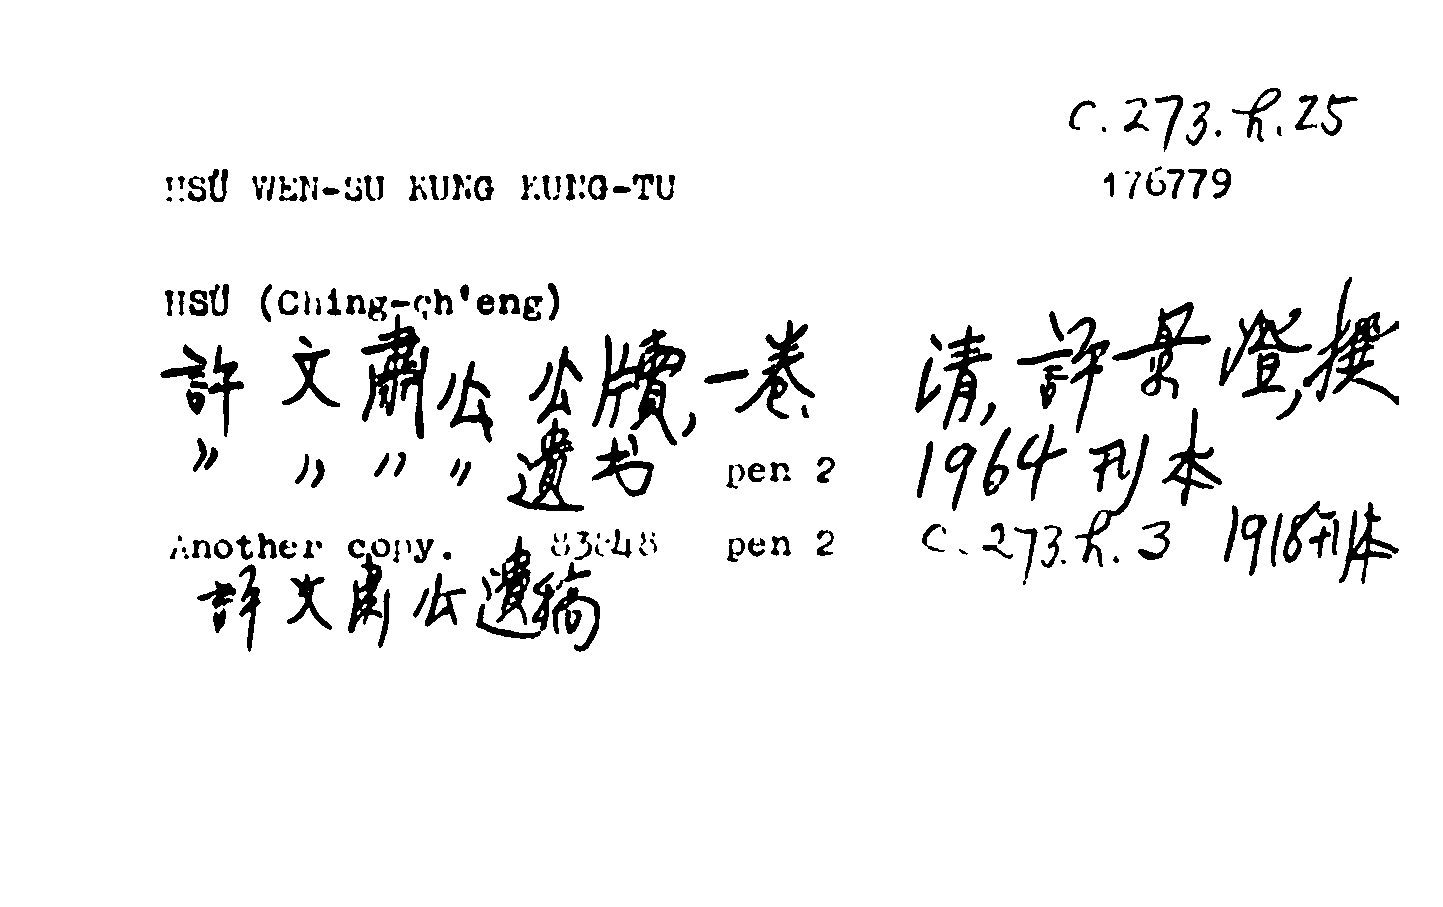 C.273.h.25
HSÜ WEN-SU KUNG KUNG-TU 176779
HSÜ (Ching-ch'eng)
許文肅公公牘,一卷. 清,許景澄,撰
〃 〃 〃 〃 遺书 pen 2 1964 刊本
Another copy. 83848 pen 2 C.273.h.3 1918刊本
許文肅公遺稿